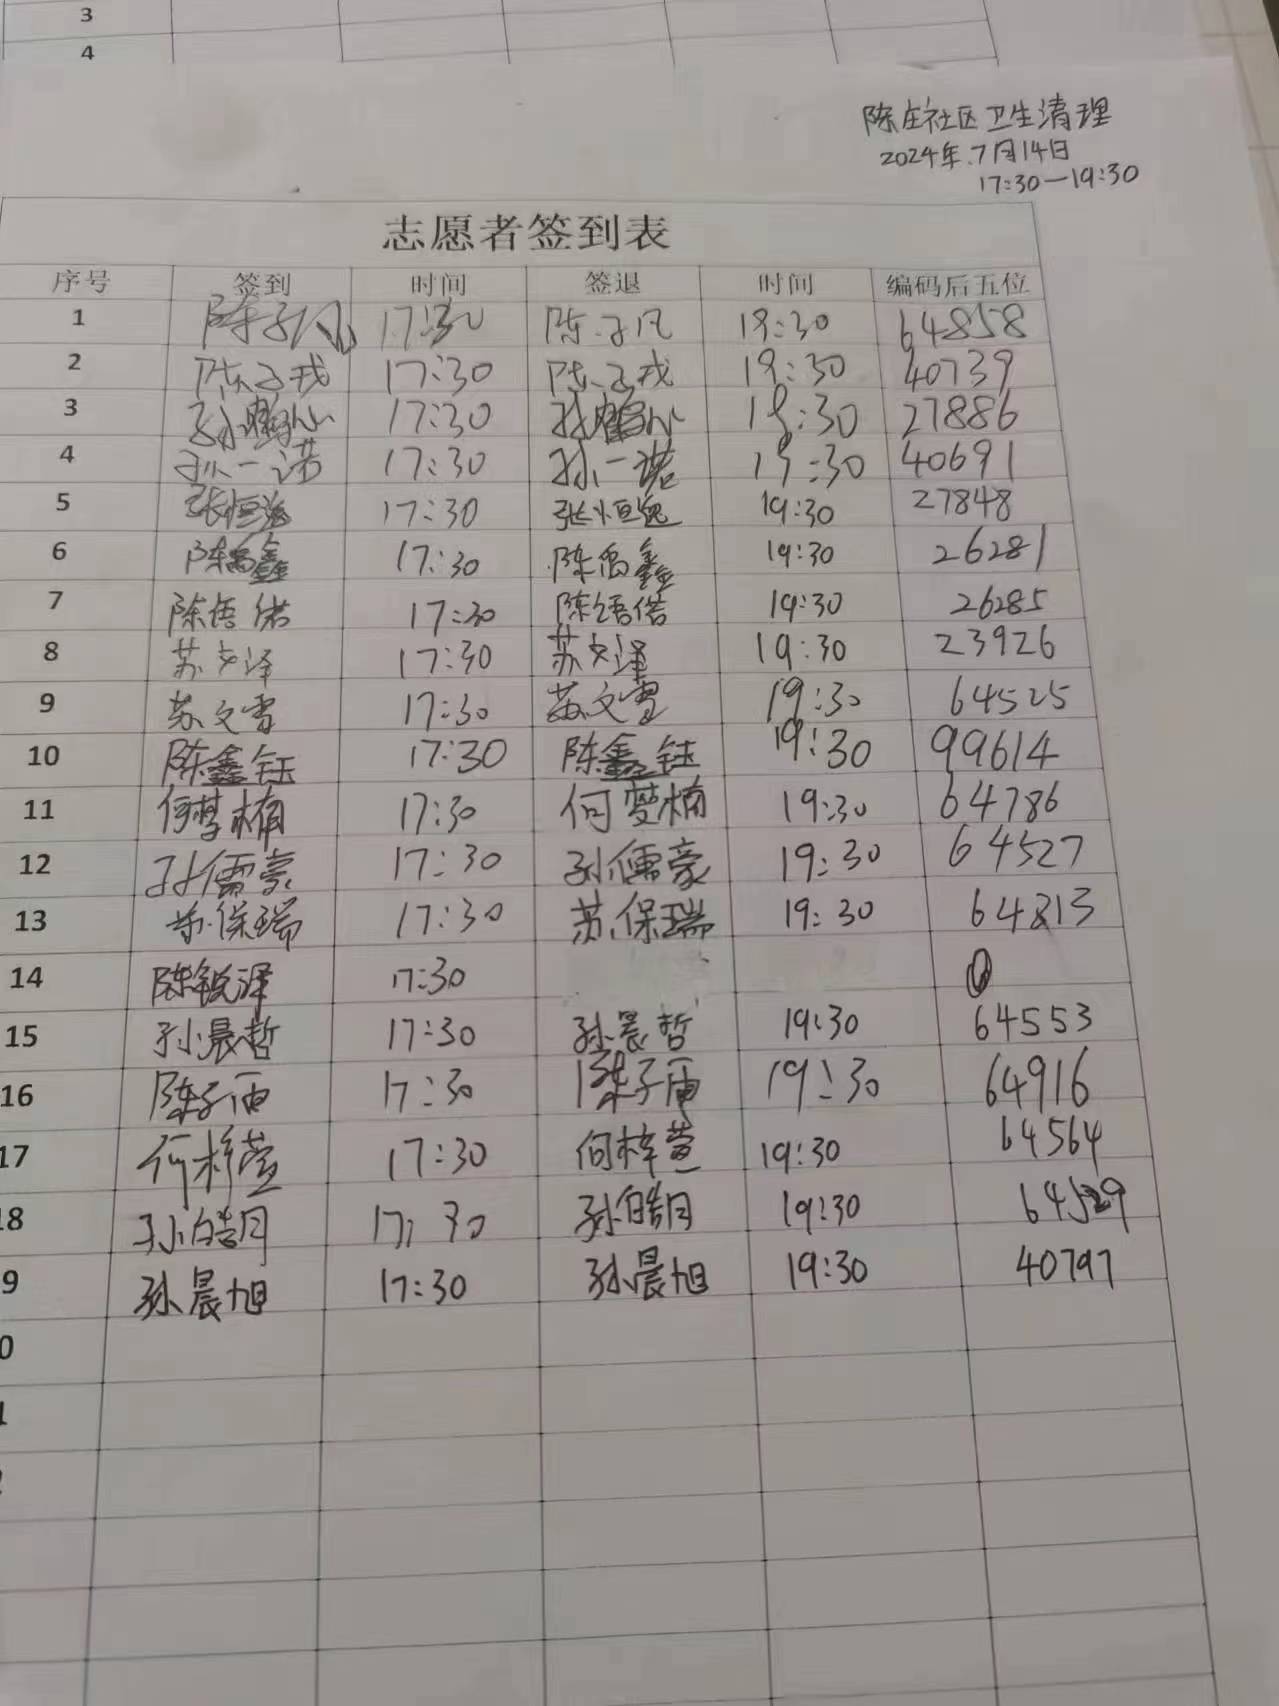 3
4
陈庄社区卫生清理
2024年.7月14日
17:30—19:30
志愿者签到表
序号 签到 时间 签退 时间 编码后五位
1 陈子凡 17:30 陈子凡 19:30 64858
2 陈子戎 17:30 陈子戎 19:30 40739
3 17:30 19:30 27886
4 孙一诺 17:30 孙一诺 19:30 40691
5 17:30 19:30 27848
6 陈禹鑫 17:30 陈禹鑫 19:30 26281
7 17:30 19:30 26285
8 苏文泽 17:30 苏文泽 19:30 23926
9 苏文雪 17:30 苏文雪 19:30 64525
10 陈鑫钰 17:30 陈鑫钰 19:30 99614
11 何梦楠 17:30 何梦楠 19:30 64786
12 孙儒豪 17:30 孙儒豪 19:30 64527
13 苏保瑞 17:30 苏保瑞 19:30 64813
14 陈锐泽 17:30
15 孙晨哲 17:30 孙晨哲 19:30 64553
16 17:30 19:30 64916
17 何梓萱 17:30 何梓萱 19:30 64564
18 孙皓月 17:30 孙皓月 19:30 64529
9 孙晨旭 17:30 孙晨旭 19:30 40797
0
1
2